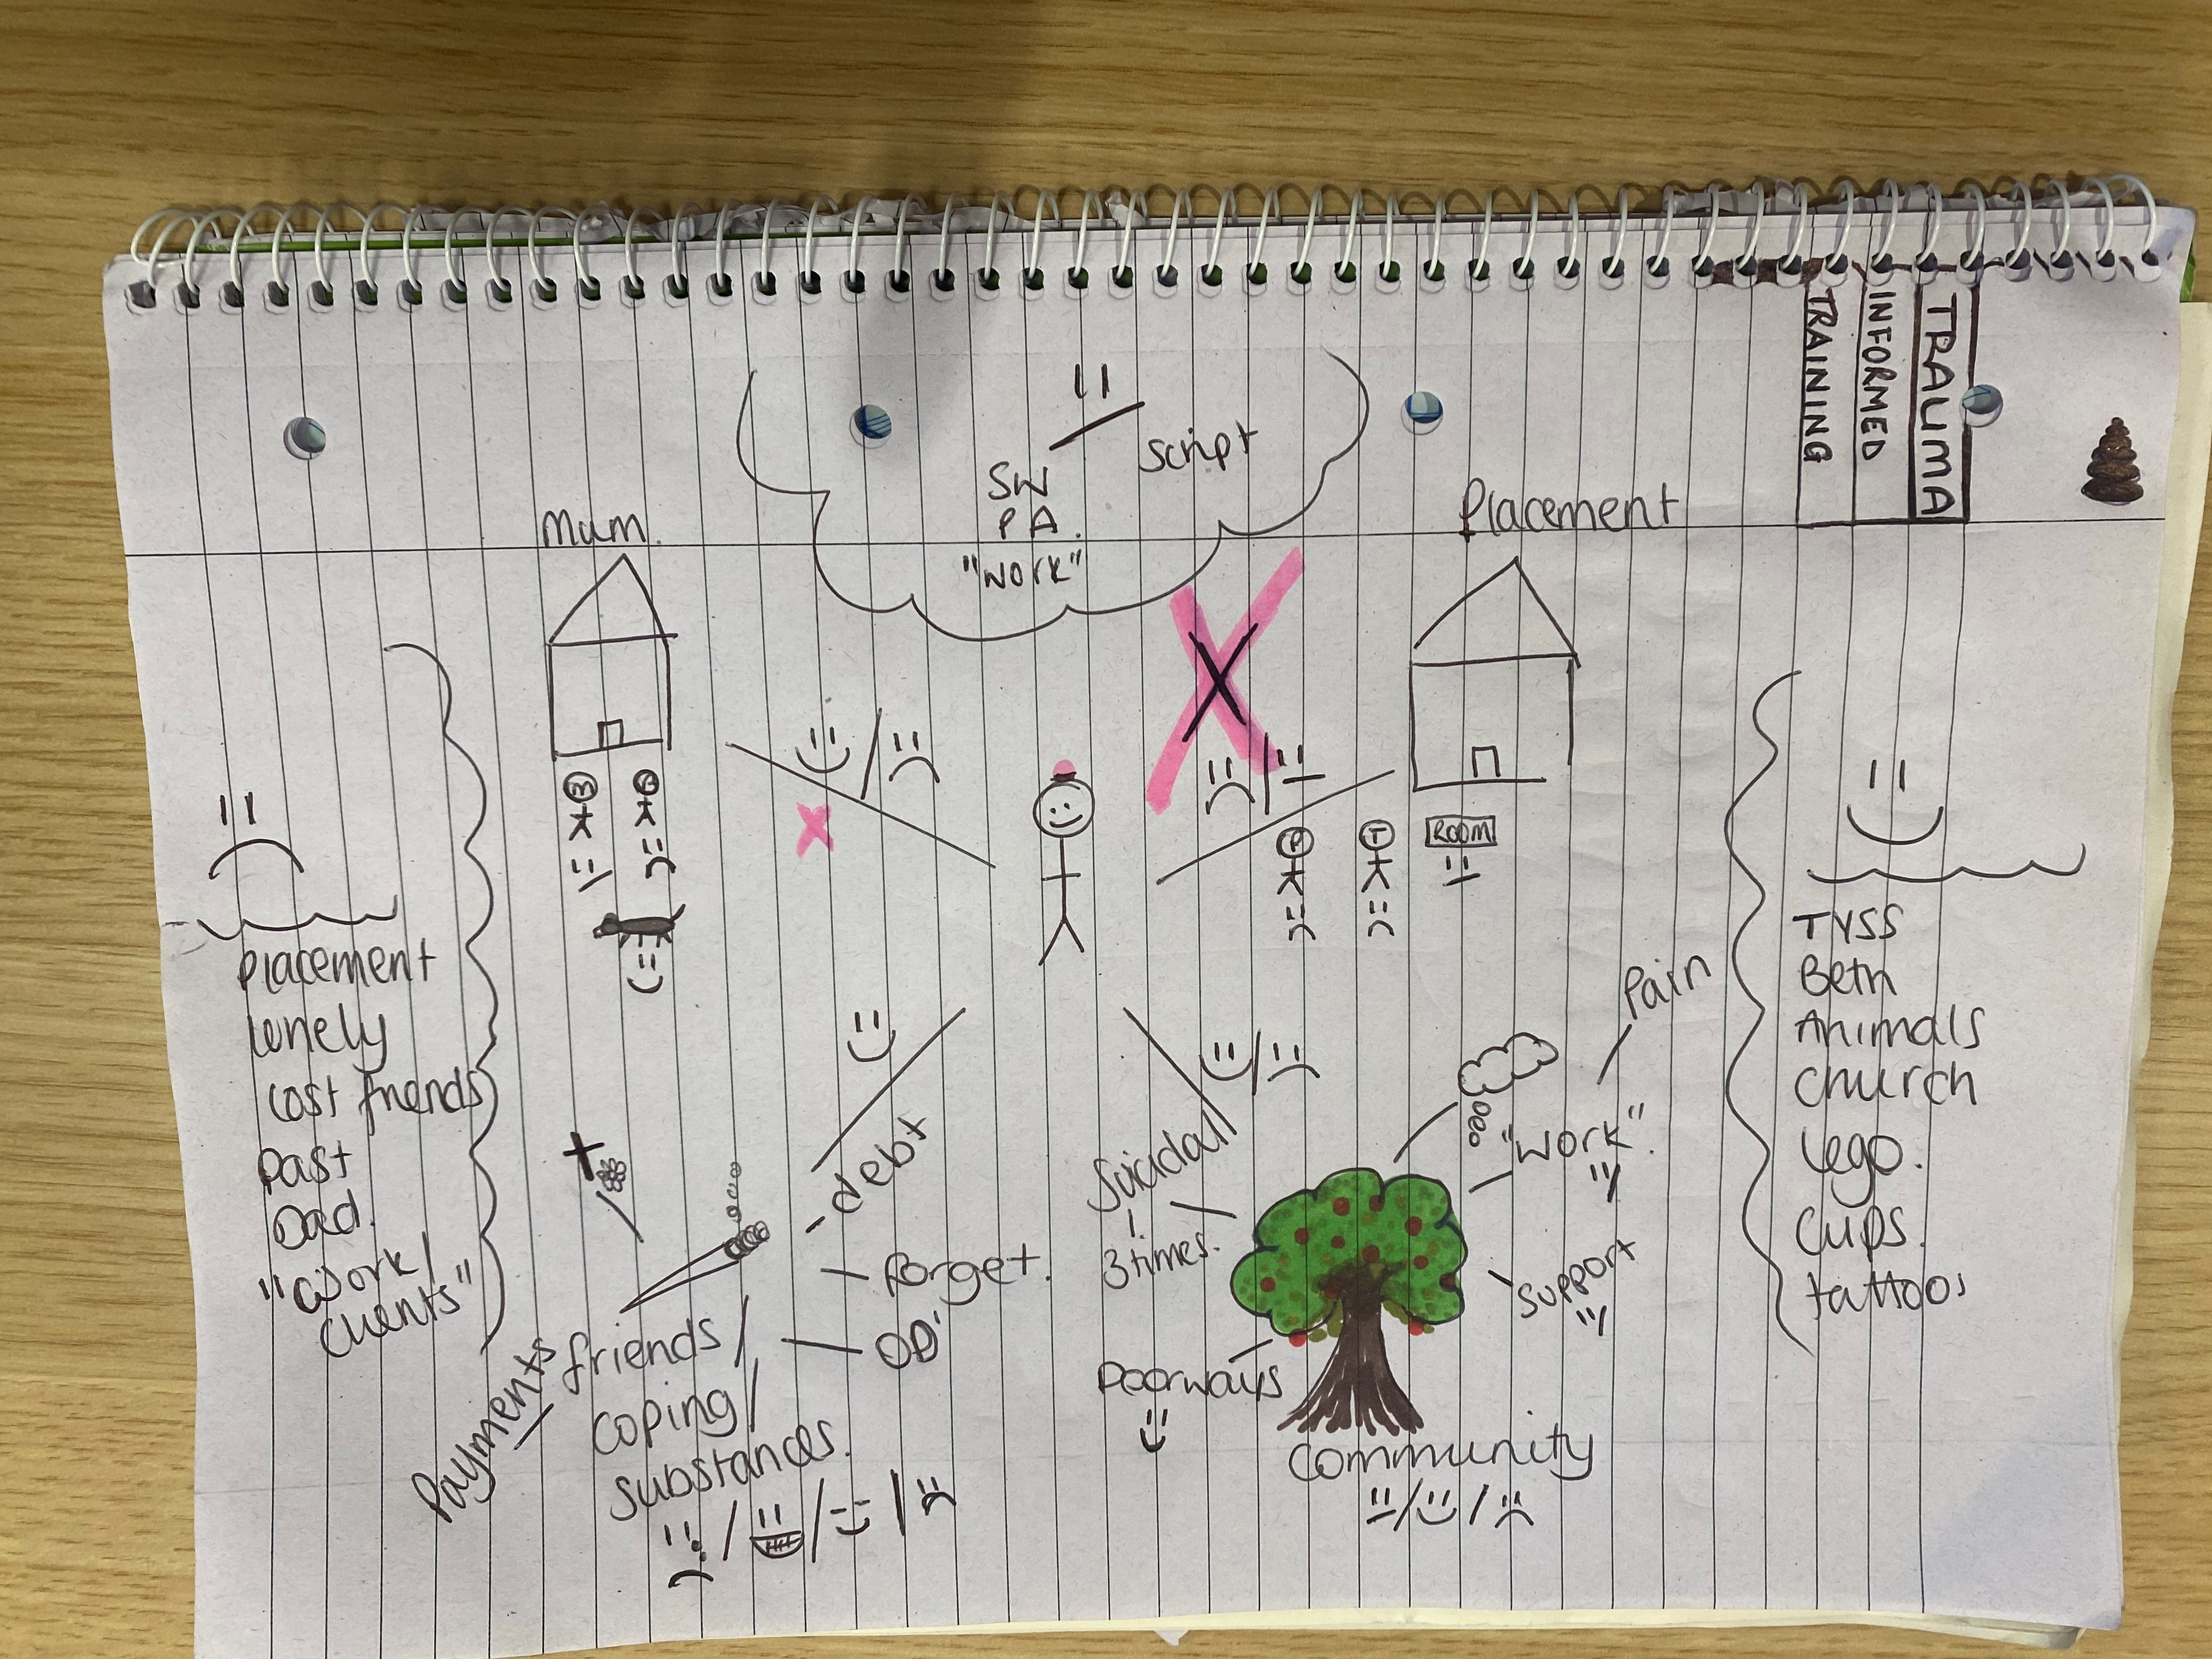 TRAUMA
INFORMED
TRAINING
script
SW
PA.
"WORK"
Mum.
Placement
M
ROOM
T
Placement
lonely
Lost friends
Past
Dad.
"Work/
Clients"
TYSS
Beth
Animals
Church
Lego.
Cups.
tattoos
debt
forget.
OD'
Payments
friends/
coping/
substances.
Suicidal
3 times.
Pain
"Work"
Support
Doorways
Community